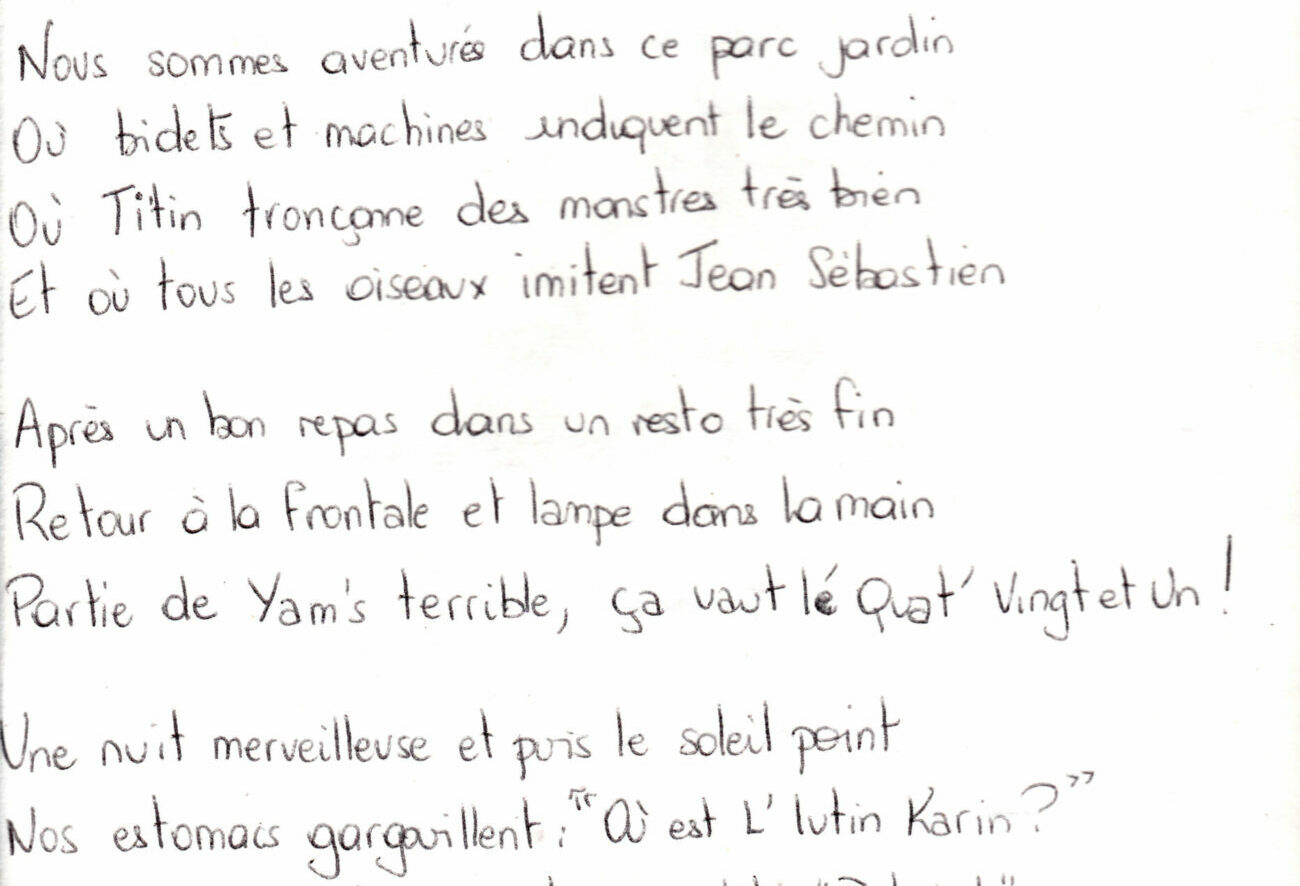 Nous sommes aventurés dans ce parc jardin
Où bidets et machines indiquent le chemin
Où Titin tronçonne des monstres très bien
Et où tous les oiseaux imitent Jean Sébastien
Après un bon repas dans un resto très fin
Retour à la frontale et lampe dans la main
Partie de Yam's terrible, ça vaut lé Quat' Vingt et Un !
Une nuit merveilleuse et puis le soleil point
Nos estomacs gargouillent : "Où est L' lutin Karin ?"